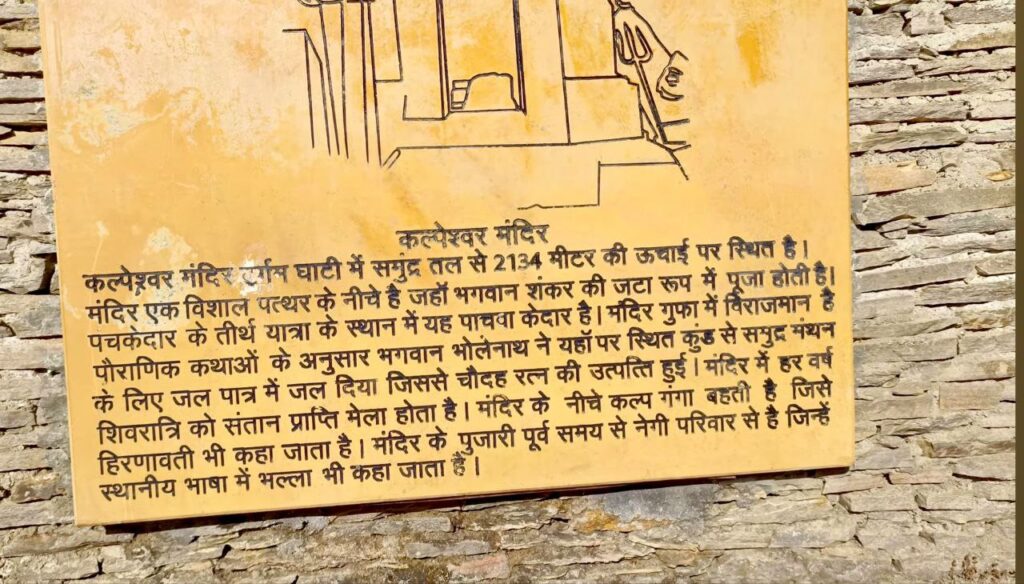 कल्पेश्वर मंदिर
कल्पेश्वर मंदिर उर्गम घाटी में समुंद्र तल से 2134 मीटर की ऊचाई पर स्थित है।
मंदिर एक विशाल पत्थर के नीचे है जहाँ भगवान शंकर की जटा रूप में पूजा होती है।
पचकेदार के तीर्थ यात्रा के स्थान में यह पाचवा केदार है। मंदिर गुफा में विराजमान है
पौराणिक कथाओं के अनुसार भगवान भोलेनाथ ने यहाँ पर स्थित कुंड से समुद्र मंथन
के लिए जल पात्र में जल दिया जिससे चौदह रत्न की उत्पत्ति हुई। मंदिर में हर वर्ष
शिवरात्रि को संतान प्राप्ति मेला होता है। मंदिर के नीचे कल्प गंगा बहती है जिसे
हिरणावती भी कहा जाता है। मंदिर के पुजारी पूर्व समय से नेगी परिवार से है जिन्हें
स्थानीय भाषा में भल्ला भी कहा जाता है।